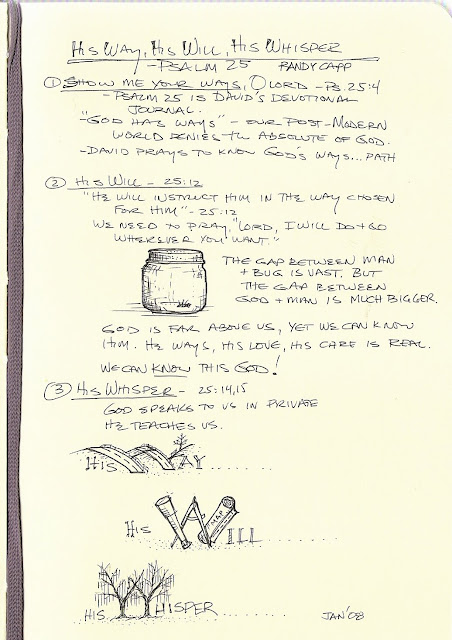 HIS WAY, HIS WILL, HIS WHISPER
- PSALM 25 RANDY CAPP
① SHOW ME YOUR WAYS, O LORD - PS. 25:4
- PSALM 25 IS DAVID'S DEVOTIONAL
JOURNAL.
"GOD HAS WAYS" - OUR POST-MODERN
WORLD DENIES THE ABSOLUTE OF GOD.
- DAVID PRAYS TO KNOW GOD'S WAYS... PATH
② HIS WILL - 25:12
"HE WILL INSTRUCT HIM IN THE WAY CHOSEN
FOR HIM" - 25:12
WE NEED TO PRAY, "LORD, I WILL DO + GO
WHEREVER YOU WANT."
THE GAP BETWEEN MAN
+ BUG IS VAST. BUT
THE GAP BETWEEN
GOD + MAN IS MUCH BIGGER.
GOD IS FAR ABOVE US, YET WE CAN KNOW
HIM. HE WAYS, HIS LOVE, HIS CARE IS REAL.
WE CAN KNOW THIS GOD!
③ HIS WHISPER - 25:14,15
GOD SPEAKS TO US IN PRIVATE
HE TEACHES US.
HIS WAY........
HIS WILL............
MAP
HIS WHISPER..........
JAN '08